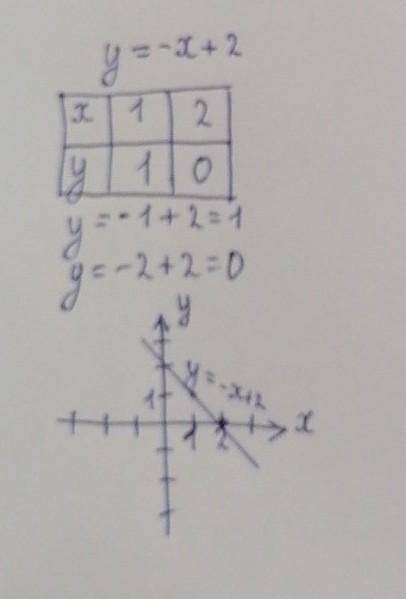 y = -x + 2
x 1 2
y 1 0
y = -1 + 2 = 1
y = -2 + 2 = 0
y
y = -x+2
1
x
1 2